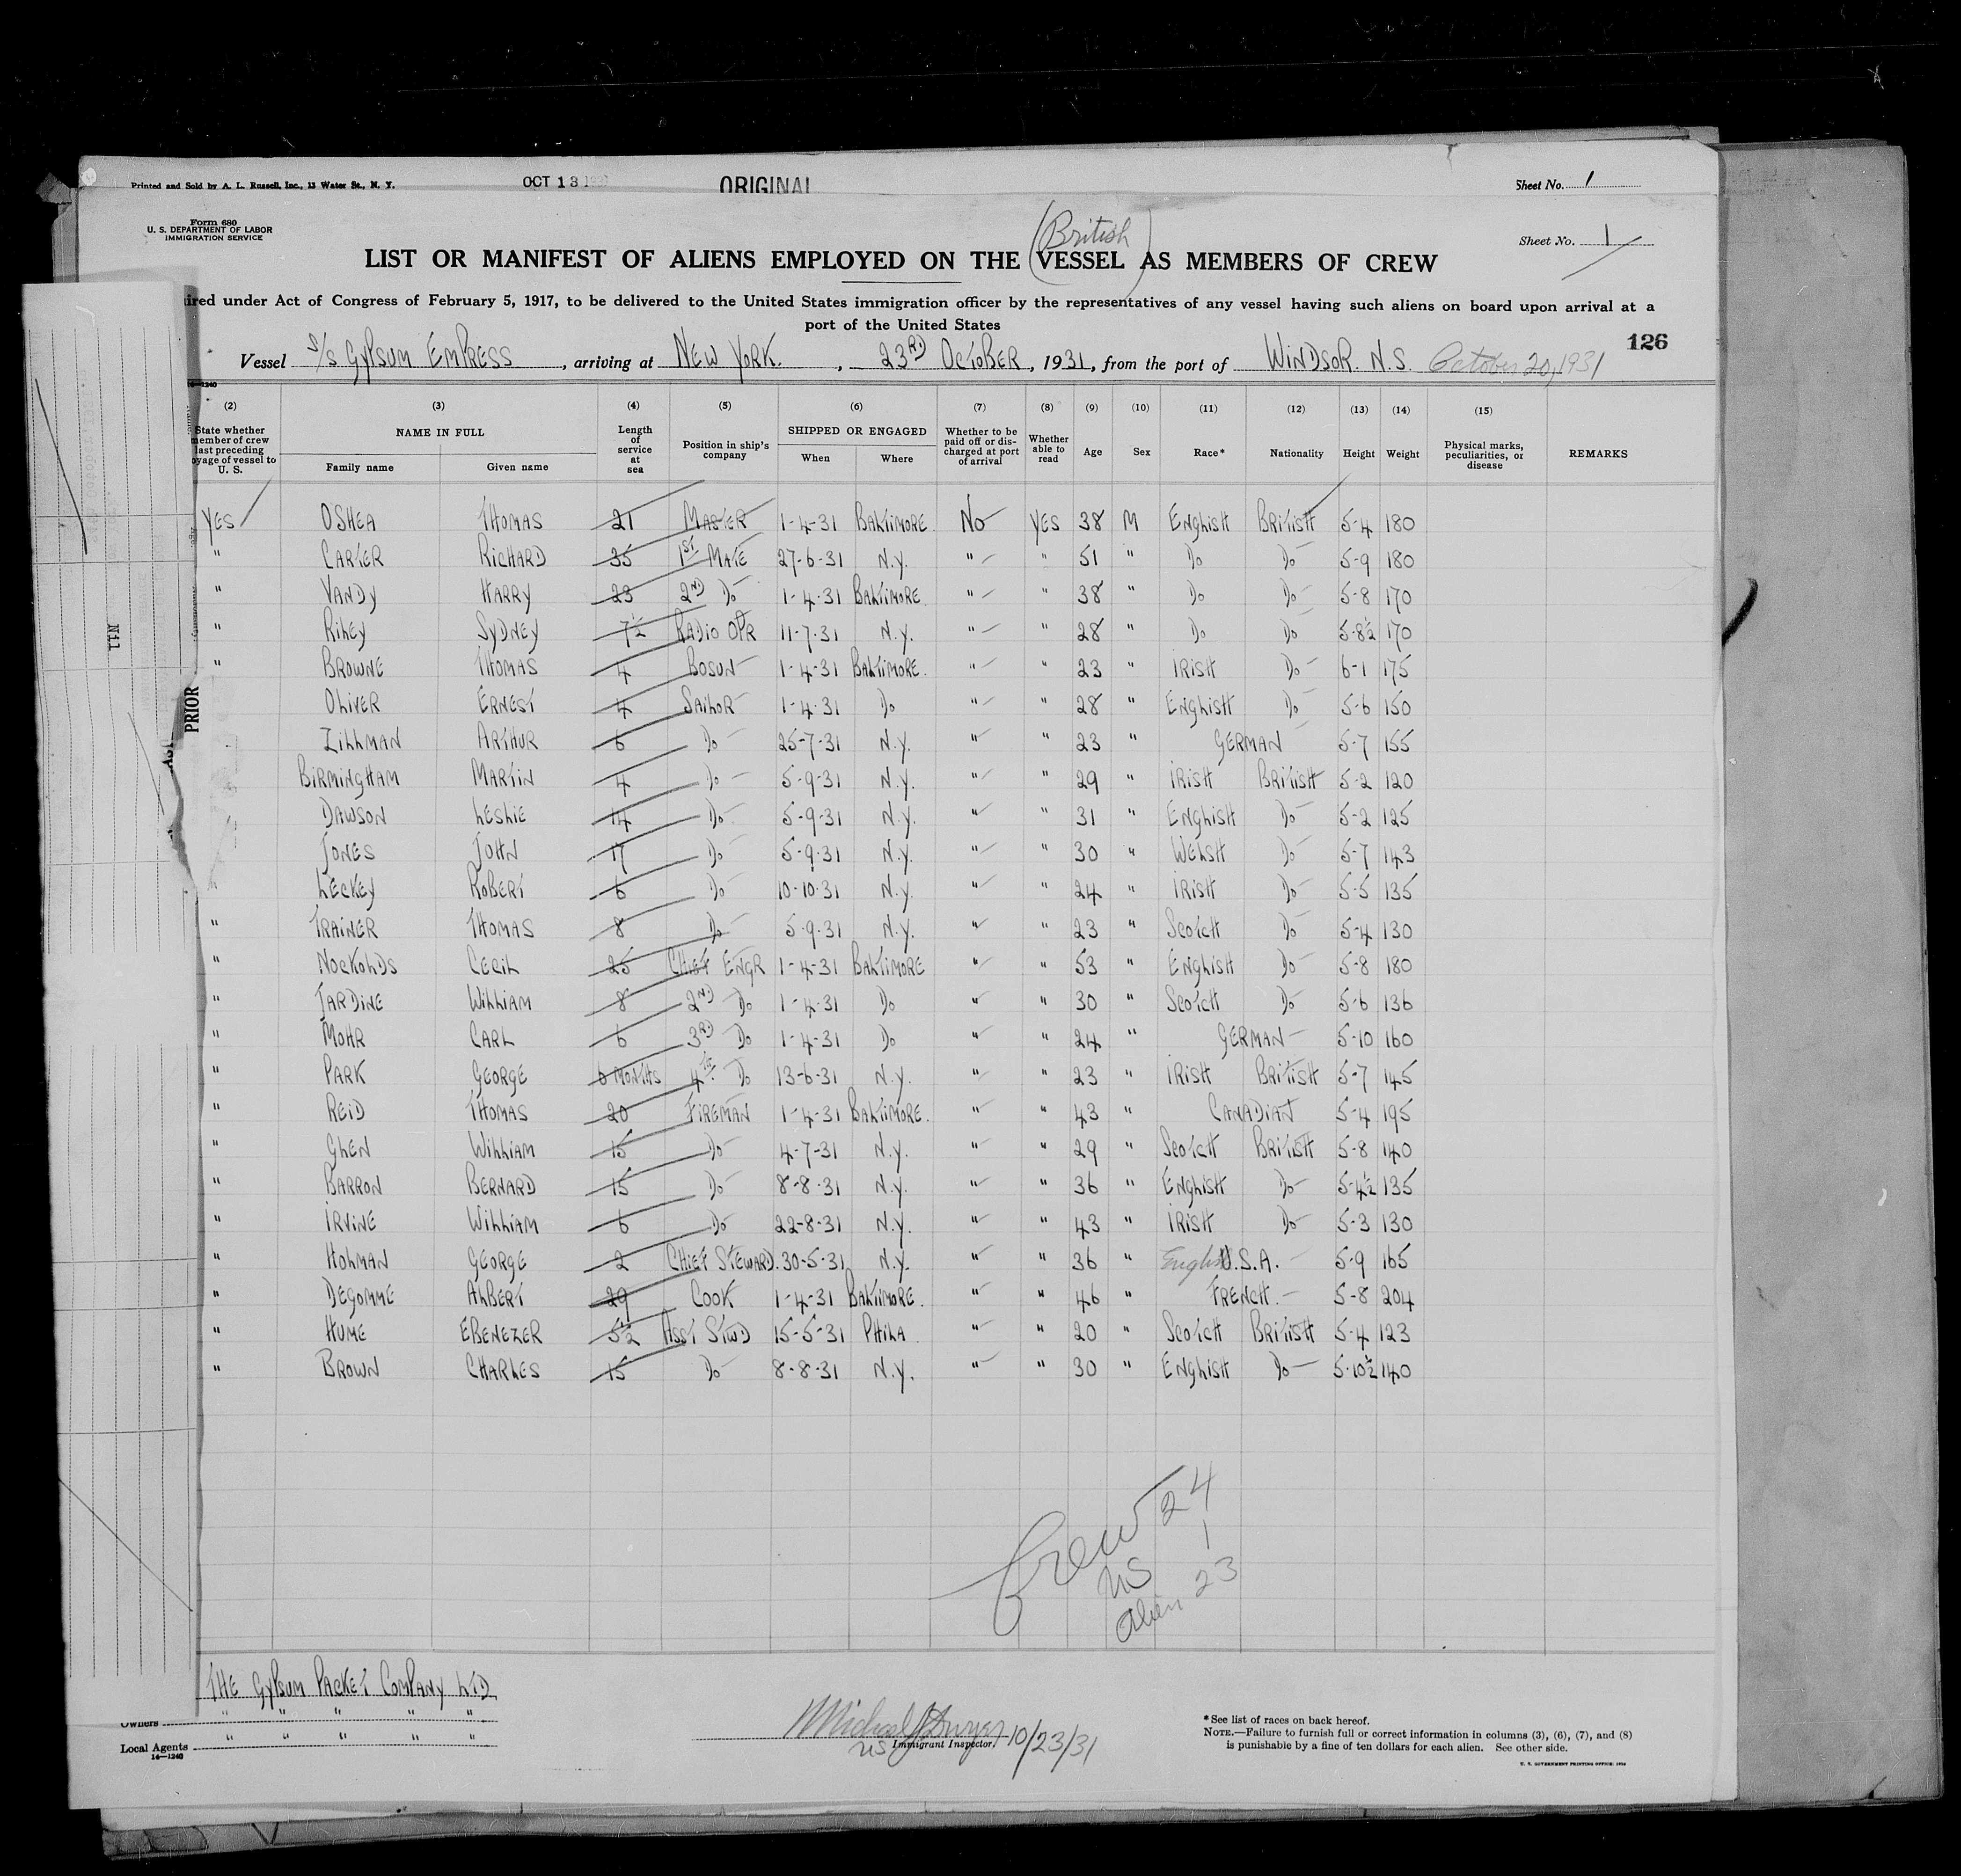 Printed and Sold by A. L. Russell, Inc., 13 Water St., N. Y. OCT 13 ORIGINAL Sheet No. 1
Form 680
U. S. DEPARTMENT OF LABOR
IMMIGRATION SERVICE
Sheet No. 1
(British)
LIST OR MANIFEST OF ALIENS EMPLOYED ON THE VESSEL AS MEMBERS OF CREW
ired under Act of Congress of February 5, 1917, to be delivered to the United States immigration officer by the representatives of any vessel having such aliens on board upon arrival at a
port of the United States
126
Vessel S/S GYPSUM EMPRESS, arriving at NEW YORK., 23RD OCTOBER, 1931, from the port of WINDSOR. N.S. October 20, 1931
(2) (3) (4) (5) (6) (7) (8) (9) (10) (11) (12) (13) (14) (15)
State whether member of crew last preceding yage of vessel to U. S. NAME IN FULL Family name Given name Length of service at sea Position in ship's company SHIPPED OR ENGAGED When Where Whether to be paid off or discharged at port of arrival Whether able to read Age Sex Race* Nationality Height Weight Physical marks, peculiarities, or disease REMARKS
YES OSHEA THOMAS 21 MASTER 1-4-31 BALTIMORE. NO YES 38 M ENGLISH BRITISH 5-4 180
" CARTER RICHARD 35 1ST MATE 27-6-31 N.Y. " " 51 " DO DO 5-9 180
" VANDY HARRY 23 2ND DO 1-4-31 BALTIMORE. " " 38 " DO DO 5-8 170
" RILEY SYDNEY 7½ RADIO OPR 11-7-31 N.Y. " " 28 " DO DO 5-8½ 170
" BROWNE THOMAS 4 BOSUN 1-4-31 BALTIMORE. " " 23 " IRISH DO 6-1 175
" OLIVER ERNEST 4 SAILOR 1-4-31 DO " " 28 " ENGLISH DO 5-6 150
ZILLMAN ARTHUR 6 DO 25-7-31 N.Y. " " 23 " GERMAN 5-7 155
BIRMINGHAM MARTIN 4 DO 5-9-31 N.Y. " " 29 " IRISH BRITISH 5-2 120
DAWSON LESLIE 14 DO 5-9-31 N.Y. " " 31 " ENGLISH DO 5-2 125
JONES JOHN 17 DO 5-9-31 N.Y. " " 30 " WELSH DO 5-7 143
" LECKEY ROBERT 6 DO 10-10-31 N.Y. " " 24 " IRISH DO 5-5 135
" TRAINER THOMAS 8 DO 5-9-31 N.Y. " " 23 " SCOTCH DO 5-4 130
" NOCKOLDS CECIL 25 CHIEF ENGR 1-4-31 BALTIMORE " " 53 " ENGLISH DO 5-8 180
" JARDINE WILLIAM 8 2ND DO 1-4-31 DO " " 30 " SCOTCH DO 5-6 136
" MOHR CARL 6 3RD DO 1-4-31 DO " " 24 " GERMAN 5-10 160
" PARK GEORGE MONTHS 4TH DO 13-6-31 N.Y. " " 23 " IRISH BRITISH 5-7 145
" REID THOMAS 20 FIREMAN 1-4-31 BALTIMORE. " " 43 " CANADIAN 5-4 195
" GLEN WILLIAM 15 DO 4-7-31 N.Y. " " 29 " SCOTCH BRITISH 5-8 140
" BARRON BERNARD 15 DO 8-8-31 N.Y. " " 36 " ENGLISH DO 5-4½ 135
" IRVINE WILLIAM 6 DO 22-8-31 N.Y. " " 43 " IRISH DO 5-3 130
" HOLMAN GEORGE 2 CHIEF STEWARD. 30-5-31 N.Y. " " 36 " English U.S.A. 5-9 165
" DEGOMME ALBERT 29 COOK 1-4-31 BALTIMORE. " " 46 " FRENCH. 5-8 204
" HUME EBENEZER 5½ ASST STWD 15-5-31 PHILA " " 20 " SCOTCH BRITISH 5-4 123
" BROWN CHARLES 15 DO 8-8-31 N.Y. " " 30 " ENGLISH DO 5-10½ 140
PRIOR
Crew 24
US 1
Alien 23
THE GYPSUM PACKET COMPANY LTD
Owners " " " " "
Local Agents " " " " "
14-1240
Michael J Dwyer 10/23/31
US Immigrant Inspector.
*See list of races on back hereof.
NOTE.—Failure to furnish full or correct information in columns (3), (6), (7), and (8)
is punishable by a fine of ten dollars for each alien. See other side.